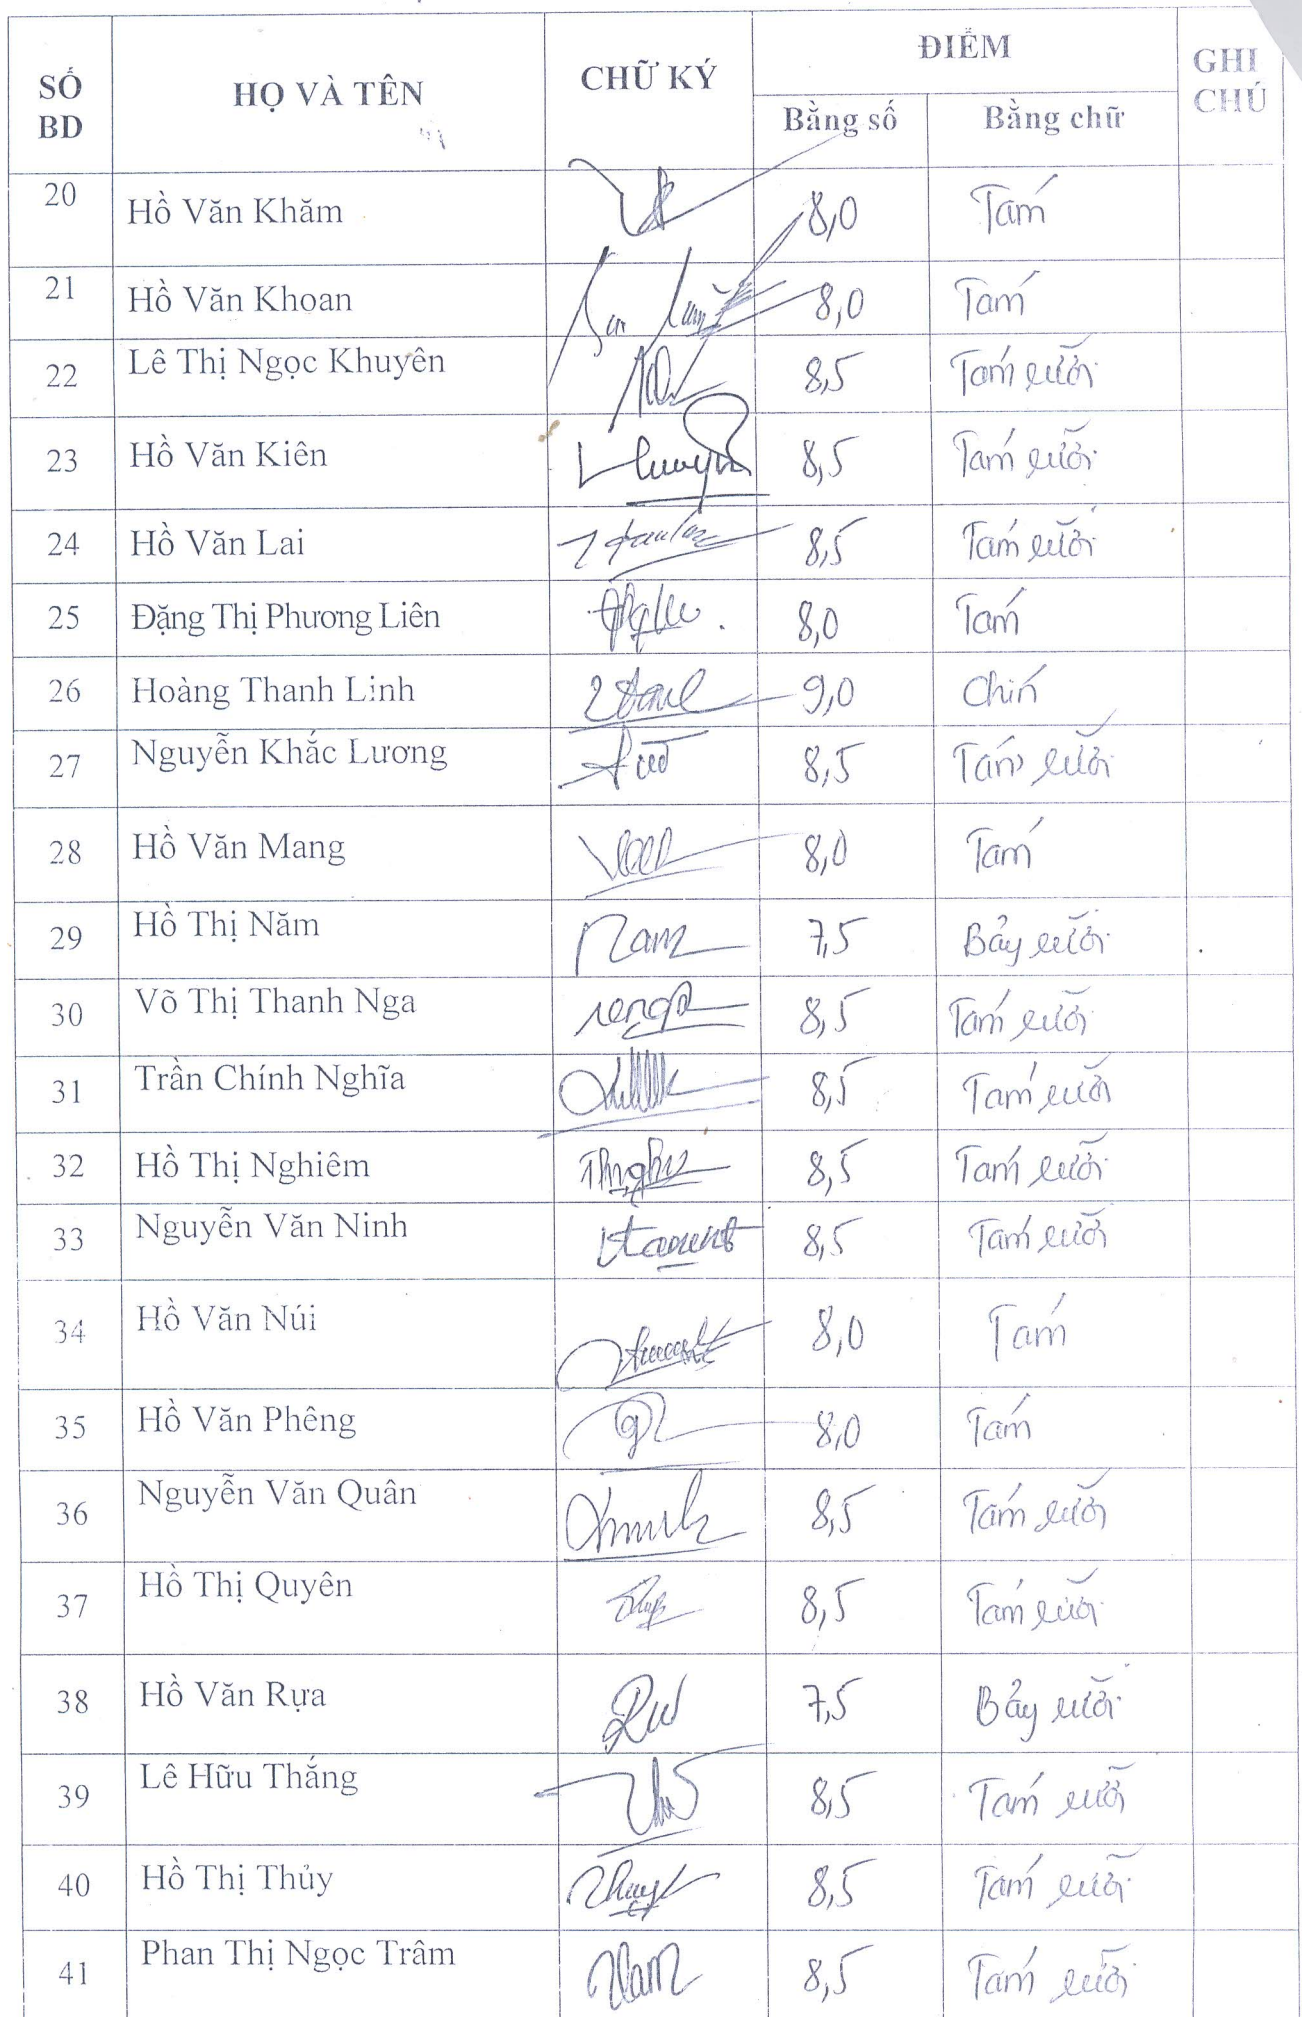 SỐ BD HỌ VÀ TÊN CHỮ KÝ ĐIỂM GHI CHÚ
Bằng số Bằng chữ
20 Hồ Văn Khăm 8,0 Tám
21 Hồ Văn Khoan 8,0 Tám
22 Lê Thị Ngọc Khuyên 8,5 Tám rưỡi
23 Hồ Văn Kiên 8,5 Tám rưỡi
24 Hồ Văn Lai 8,5 Tám rưỡi
25 Đặng Thị Phương Liên 8,0 Tám
26 Hoàng Thanh Linh 9,0 Chín
27 Nguyễn Khắc Lương 8,5 Tám rưỡi
28 Hồ Văn Mang 8,0 Tám
29 Hồ Thị Năm 7,5 Bảy rưỡi
30 Võ Thị Thanh Nga 8,5 Tám rưỡi
31 Trần Chính Nghĩa 8,5 Tám rưỡi
32 Hồ Thị Nghiêm 8,5 Tám rưỡi
33 Nguyễn Văn Ninh 8,5 Tám rưỡi
34 Hồ Văn Núi 8,0 Tám
35 Hồ Văn Phêng 8,0 Tám
36 Nguyễn Văn Quân 8,5 Tám rưỡi
37 Hồ Thị Quyên 8,5 Tám rưỡi
38 Hồ Văn Rựa 7,5 Bảy rưỡi
39 Lê Hữu Thắng 8,5 Tám rưỡi
40 Hồ Thị Thủy 8,5 Tám rưỡi
41 Phan Thị Ngọc Trâm 8,5 Tám rưỡi